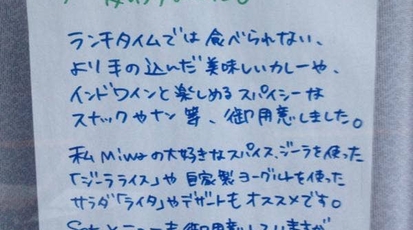 ランチタイムでは食べられない、
より手の込んだ美味しいカレーや、
インドワインと楽しめるスパイシーな
スナックやナン等、御用意しました。
私Miwaの大好きなスパイス、ジーラを使った
「ジーラライス」や自家製ヨーグルトを使った
サラダ「ライタ」やデザートもオススメです。
Setメニューも御用意していますが